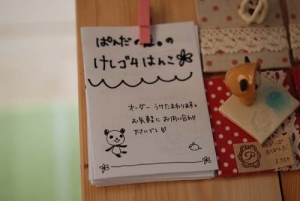 ぱんだ の
けしゴムはんこ
オーダー うけたまわります。
お気軽に お問い合わせ
ださいでし
P